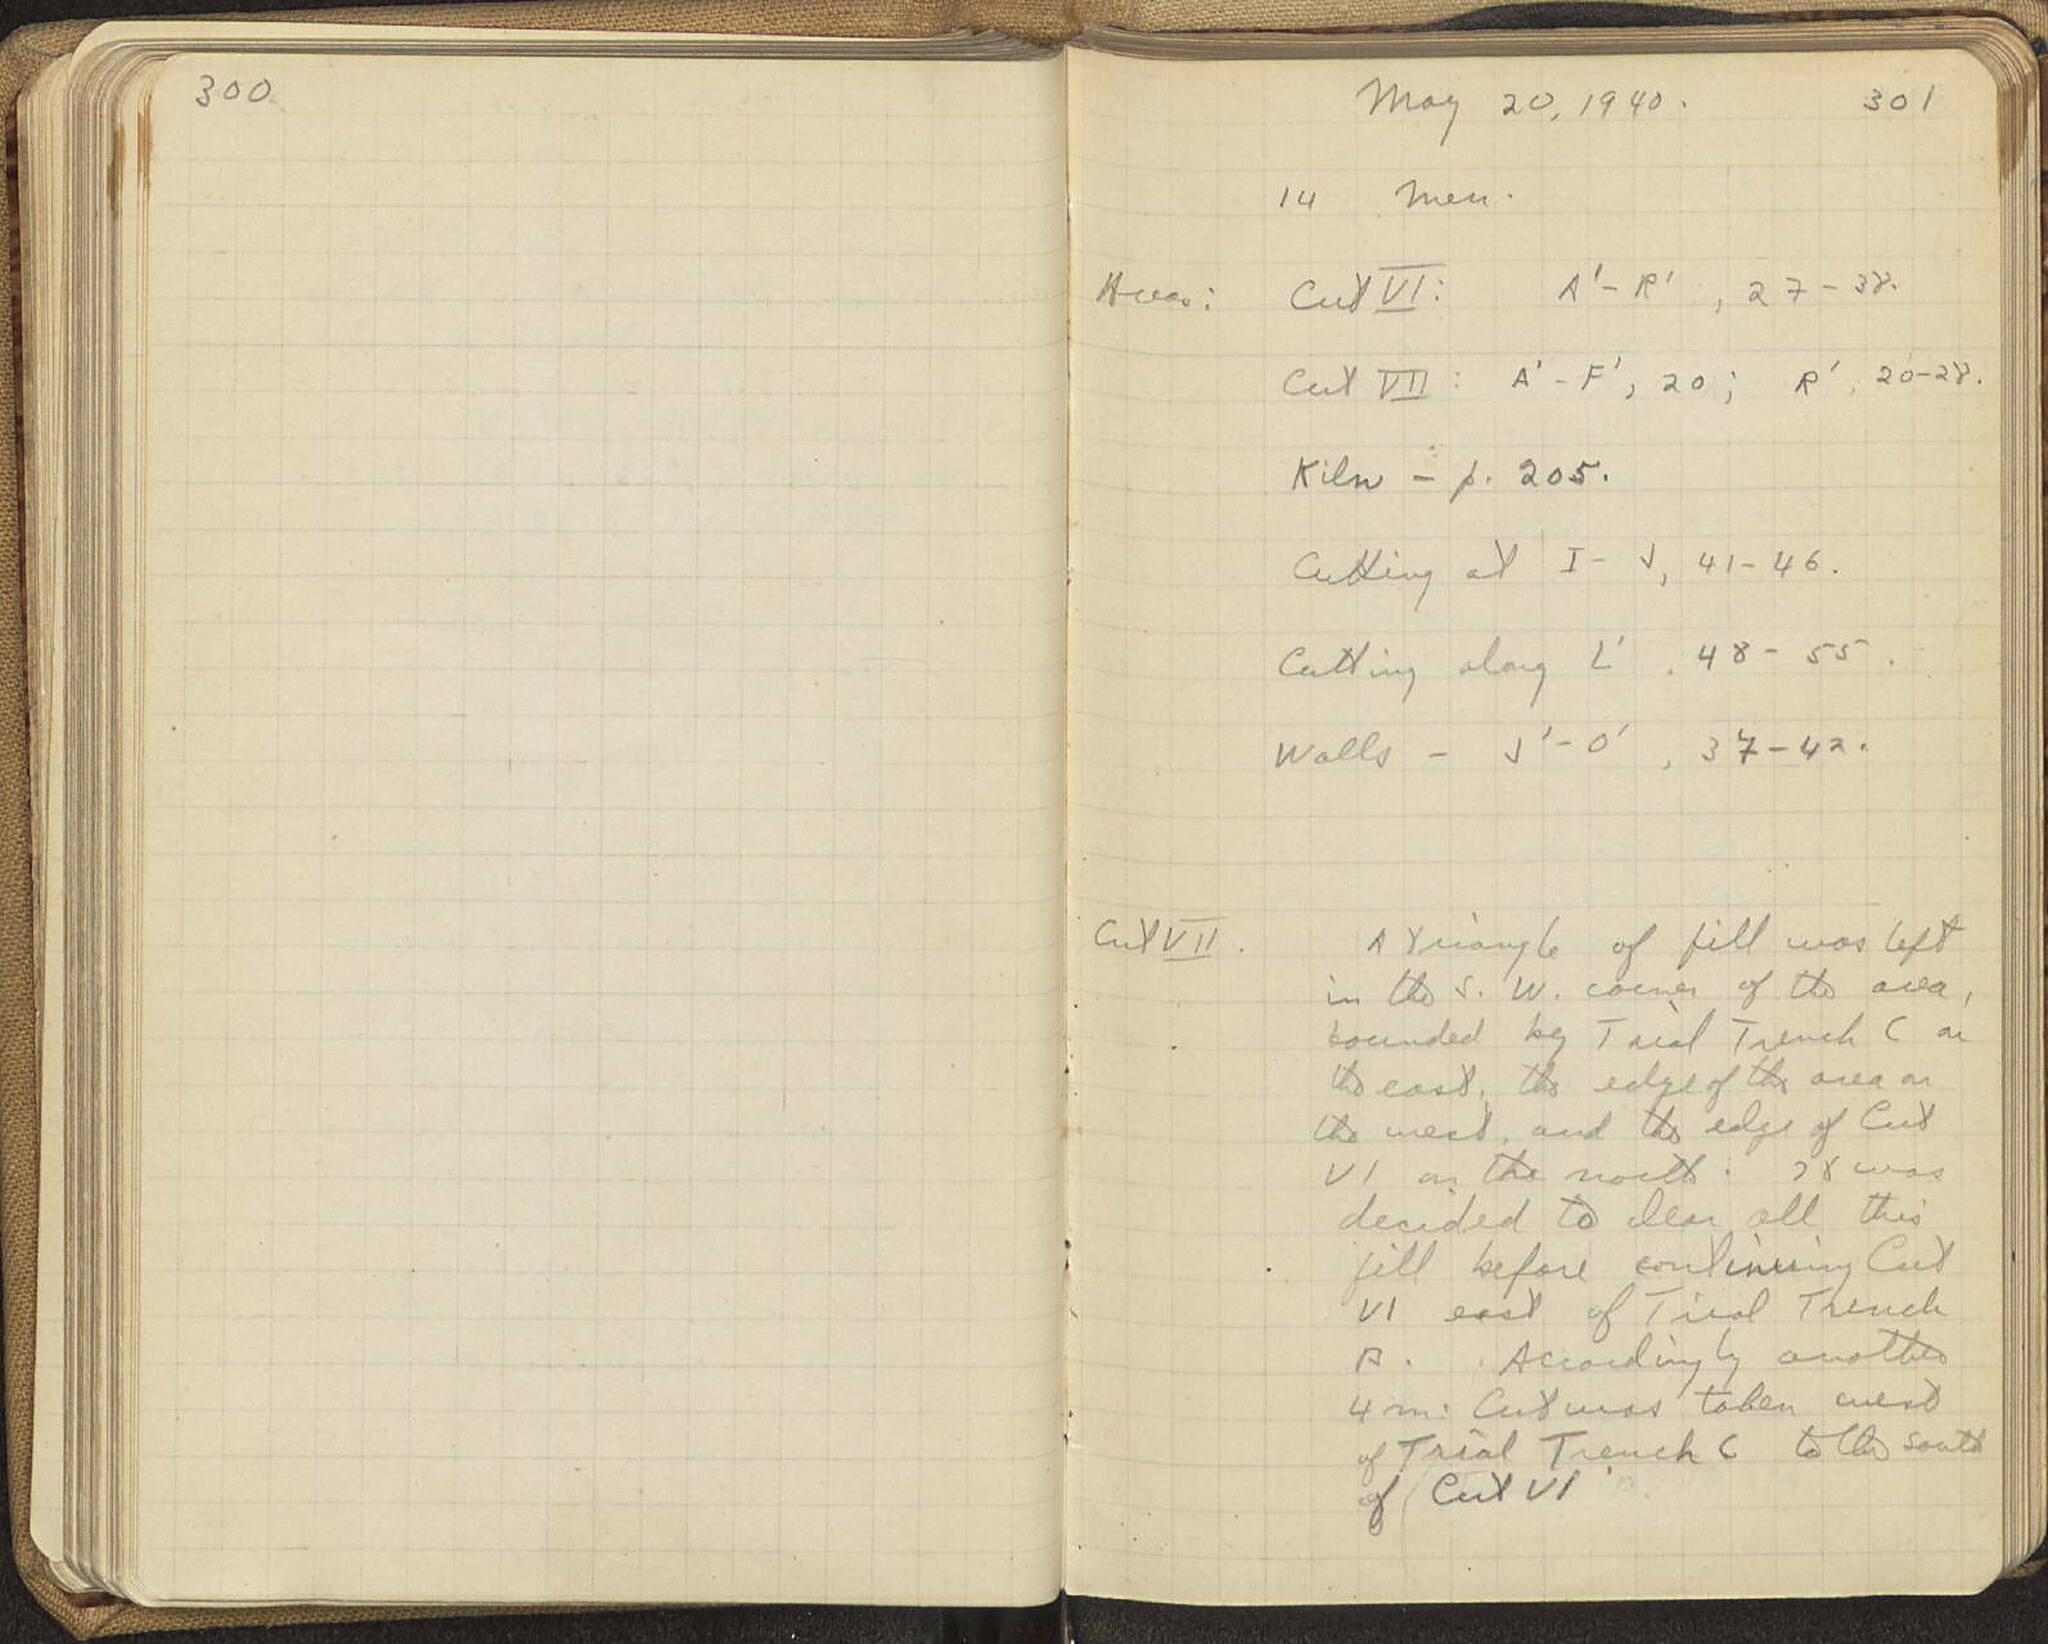 300
May 20, 1940. 301
14 men.
Areas: Cut VI: A'-R', 27-38.
Cut VII: A'-F', 20; R', 20-28.
Kiln - p. 205.
Cutting at I-J, 41-46.
Cutting along L', 48-55.
Walls - J'-O', 37-42.
Cut VII. A triangle of fill was left
in the S. W. corner of the area,
bounded by Trial Trench C on
the east, the edge of the area on
the west, and the edge of Cut
VI on the north. It was
decided to clear all this
fill before continuing Cut
VI east of Trial Trench
B. Accordingly another
4 m. Cut was taken west
of Trial Trench C to the south
of Cut VI